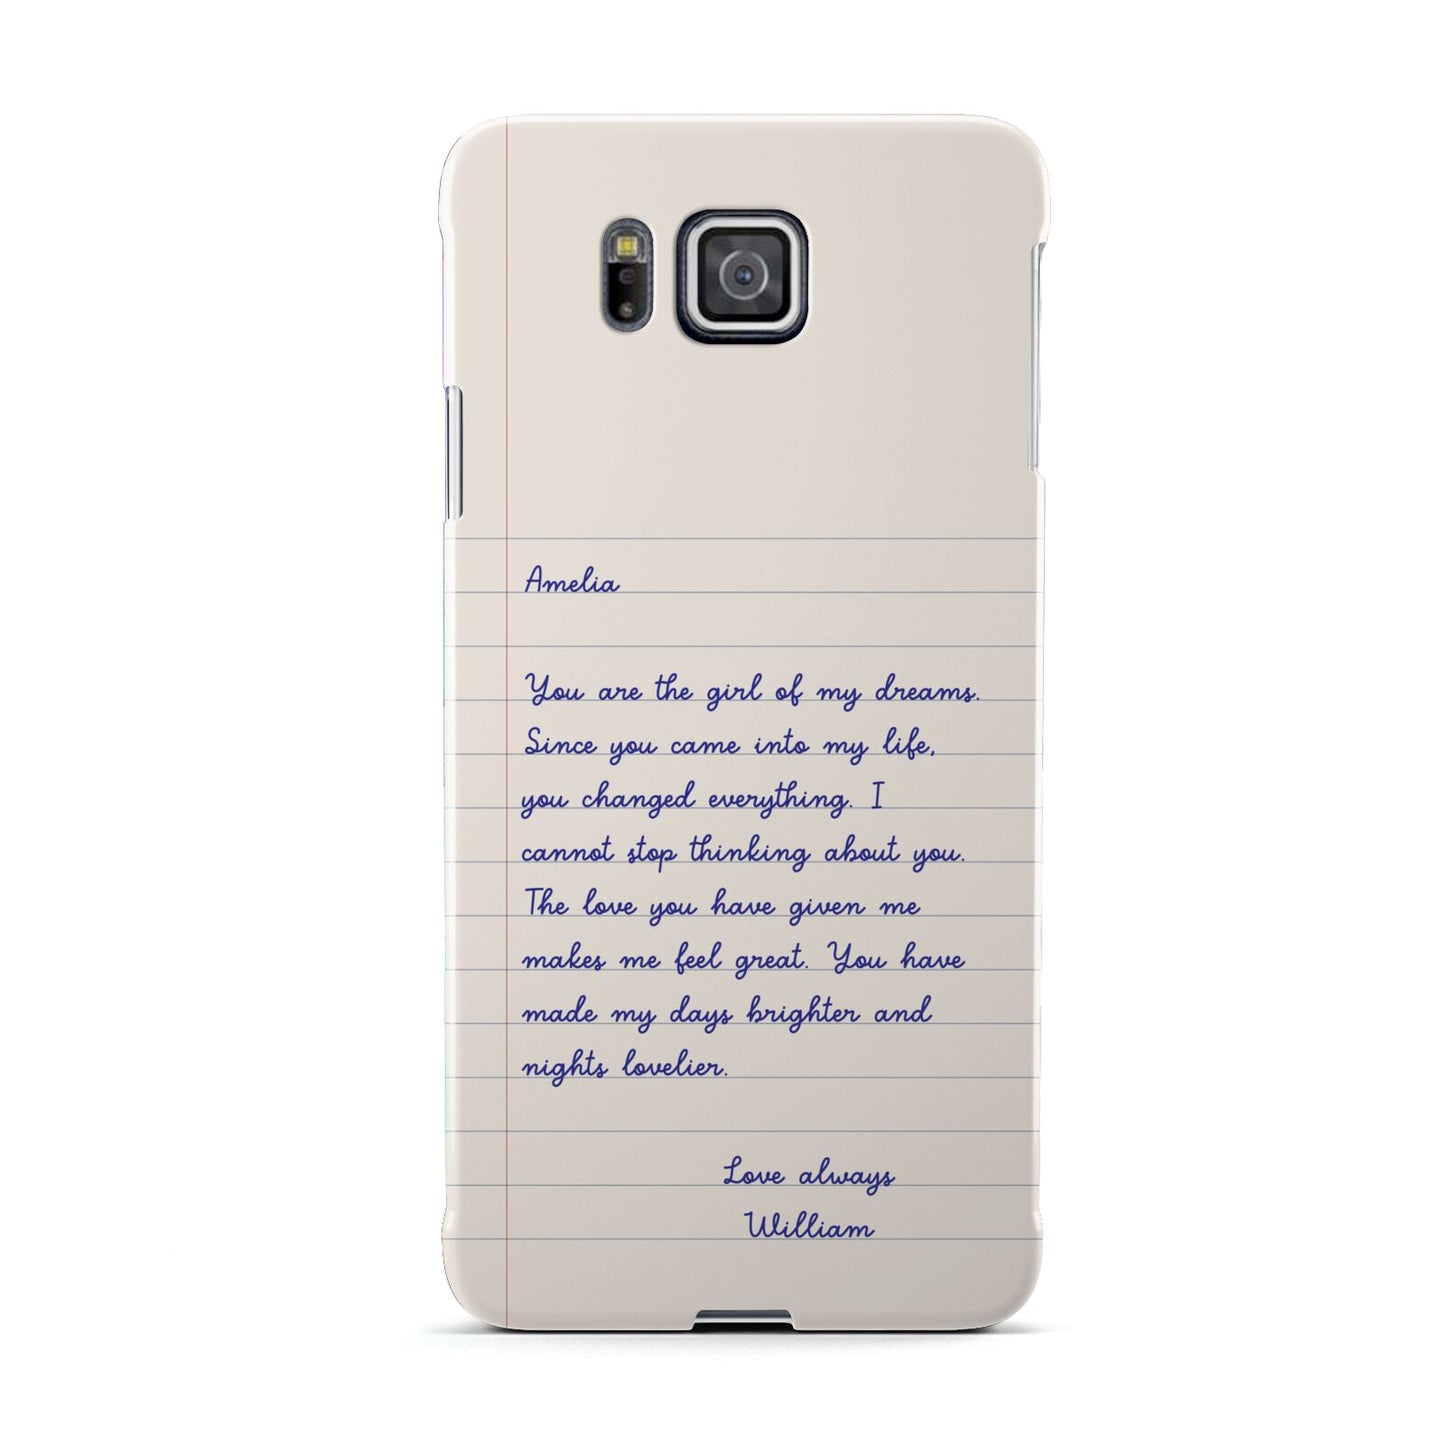 Amelia
You are the girl of my dreams.
Since you came into my life,
you changed everything. I
cannot stop thinking about you.
The love you have given me
makes me feel great. You have
made my days brighter and
nights lovelier.
Love always
William